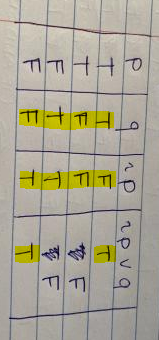 p q ~p ~p∨q
T T F T
T F F F
F T T F
F F T T